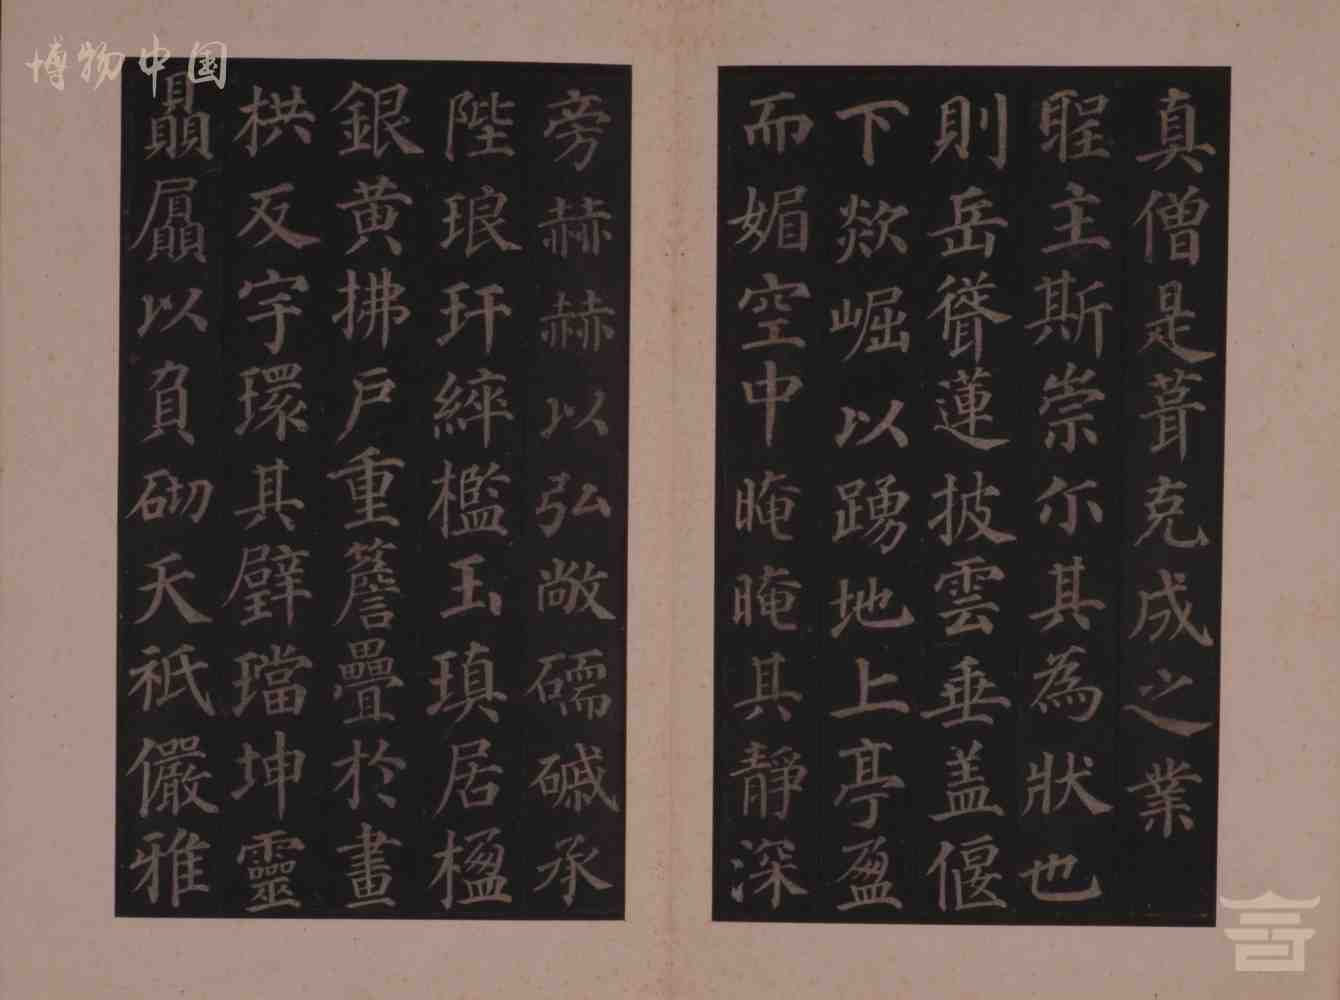 博物中国
真僧是葺克成之業
聖主斯崇尓其為狀也
則岳聳蓮披雲垂盖偃
下欻崛以踴地上亭盈
而媚空中晻晻其靜深
旁赫赫以弘敞礝磩承
陛琅玕綷檻玉瑱居楹
銀黄拂戶重簷疊於畫
栱反宇環其壁璫坤靈
贔屭以負砌天祇儼雅